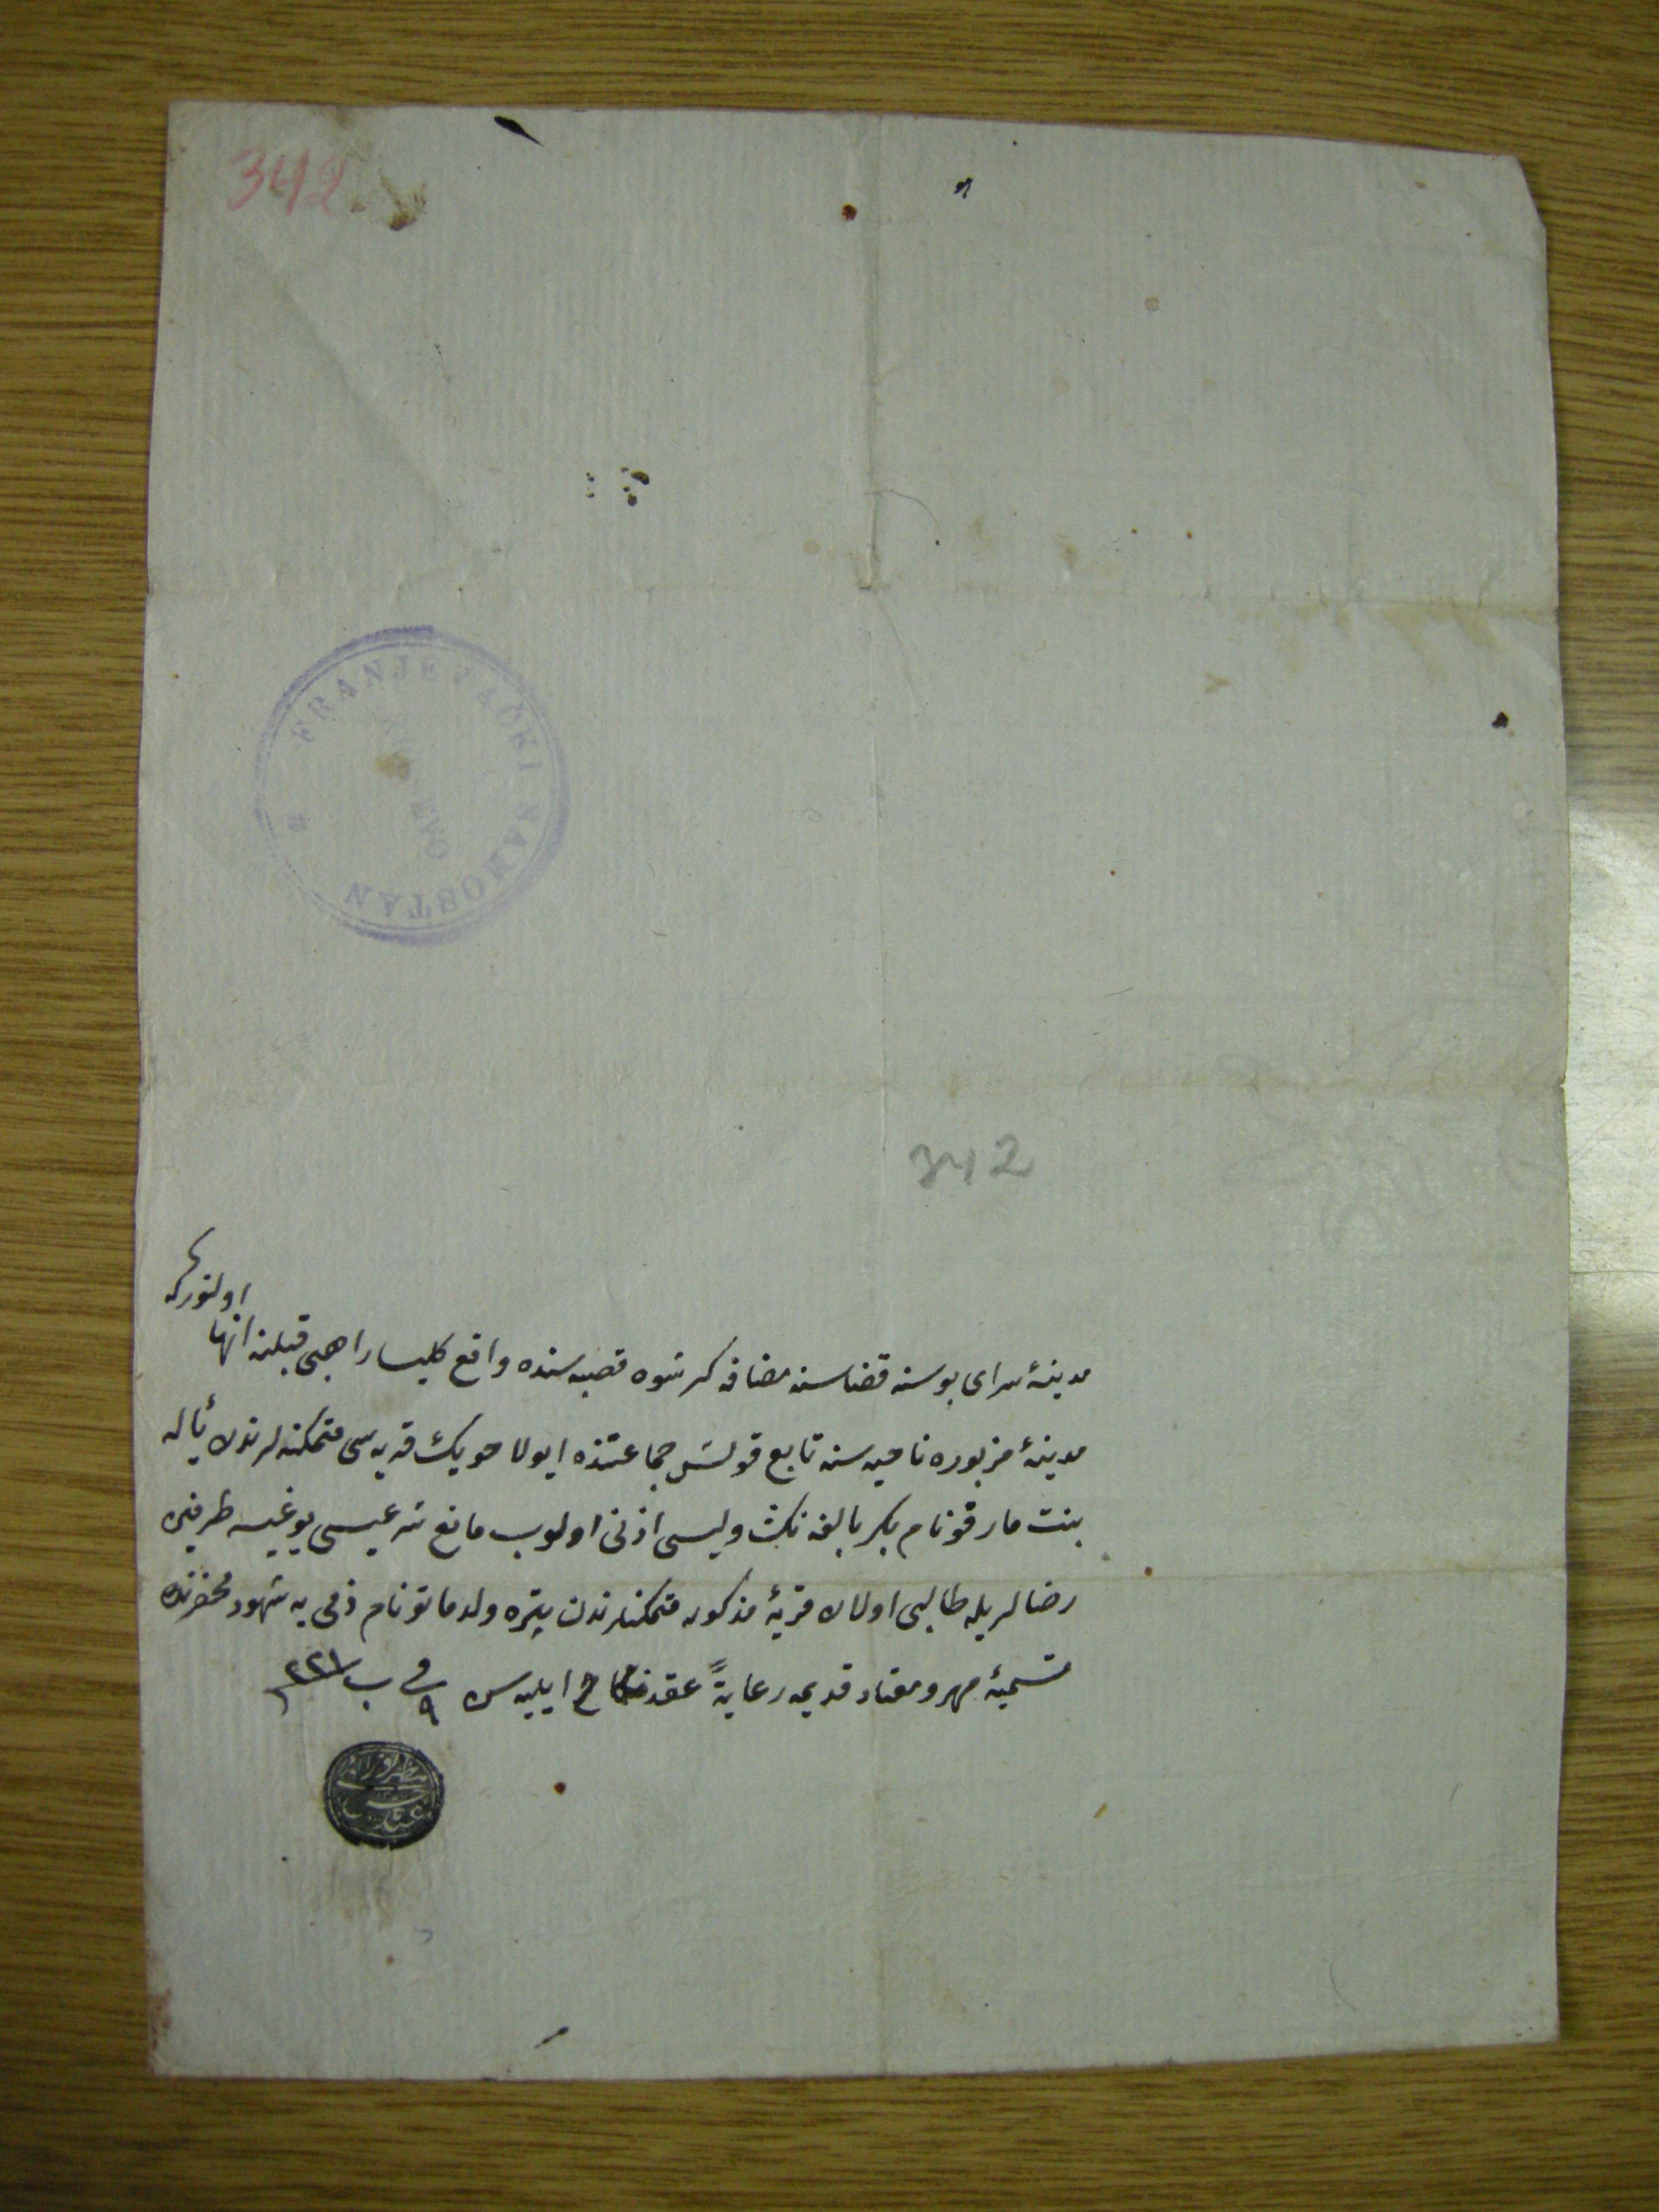 342
FRANJEVAČKI SAMOSTAN
342
مدینهٔ سرای بوسنه قضاسنه مضافه كرشوه قصبه سنده واقع كلیسا راهبی قبلنه انها اولنوركه
مدینهٔ مزبوره ناحیه سنه تابع جماعتنده قریه سی متمكنه لرندن
بنت مارقو نام بكر بالغه نك ولیسی اذنی اولوب مانع شرعیسی یوغیسه طرفین
رضالریله طالبی اولان قریهٔ مذكوره متمكنلرندن پتره ولد ماتو نام ذمی یه شهود محضرنده
تسمیهٔ مهر و معتاد قدیمه رعایةً عقد نكاح ایلیه سن فی ٩ ب ١٢٢١